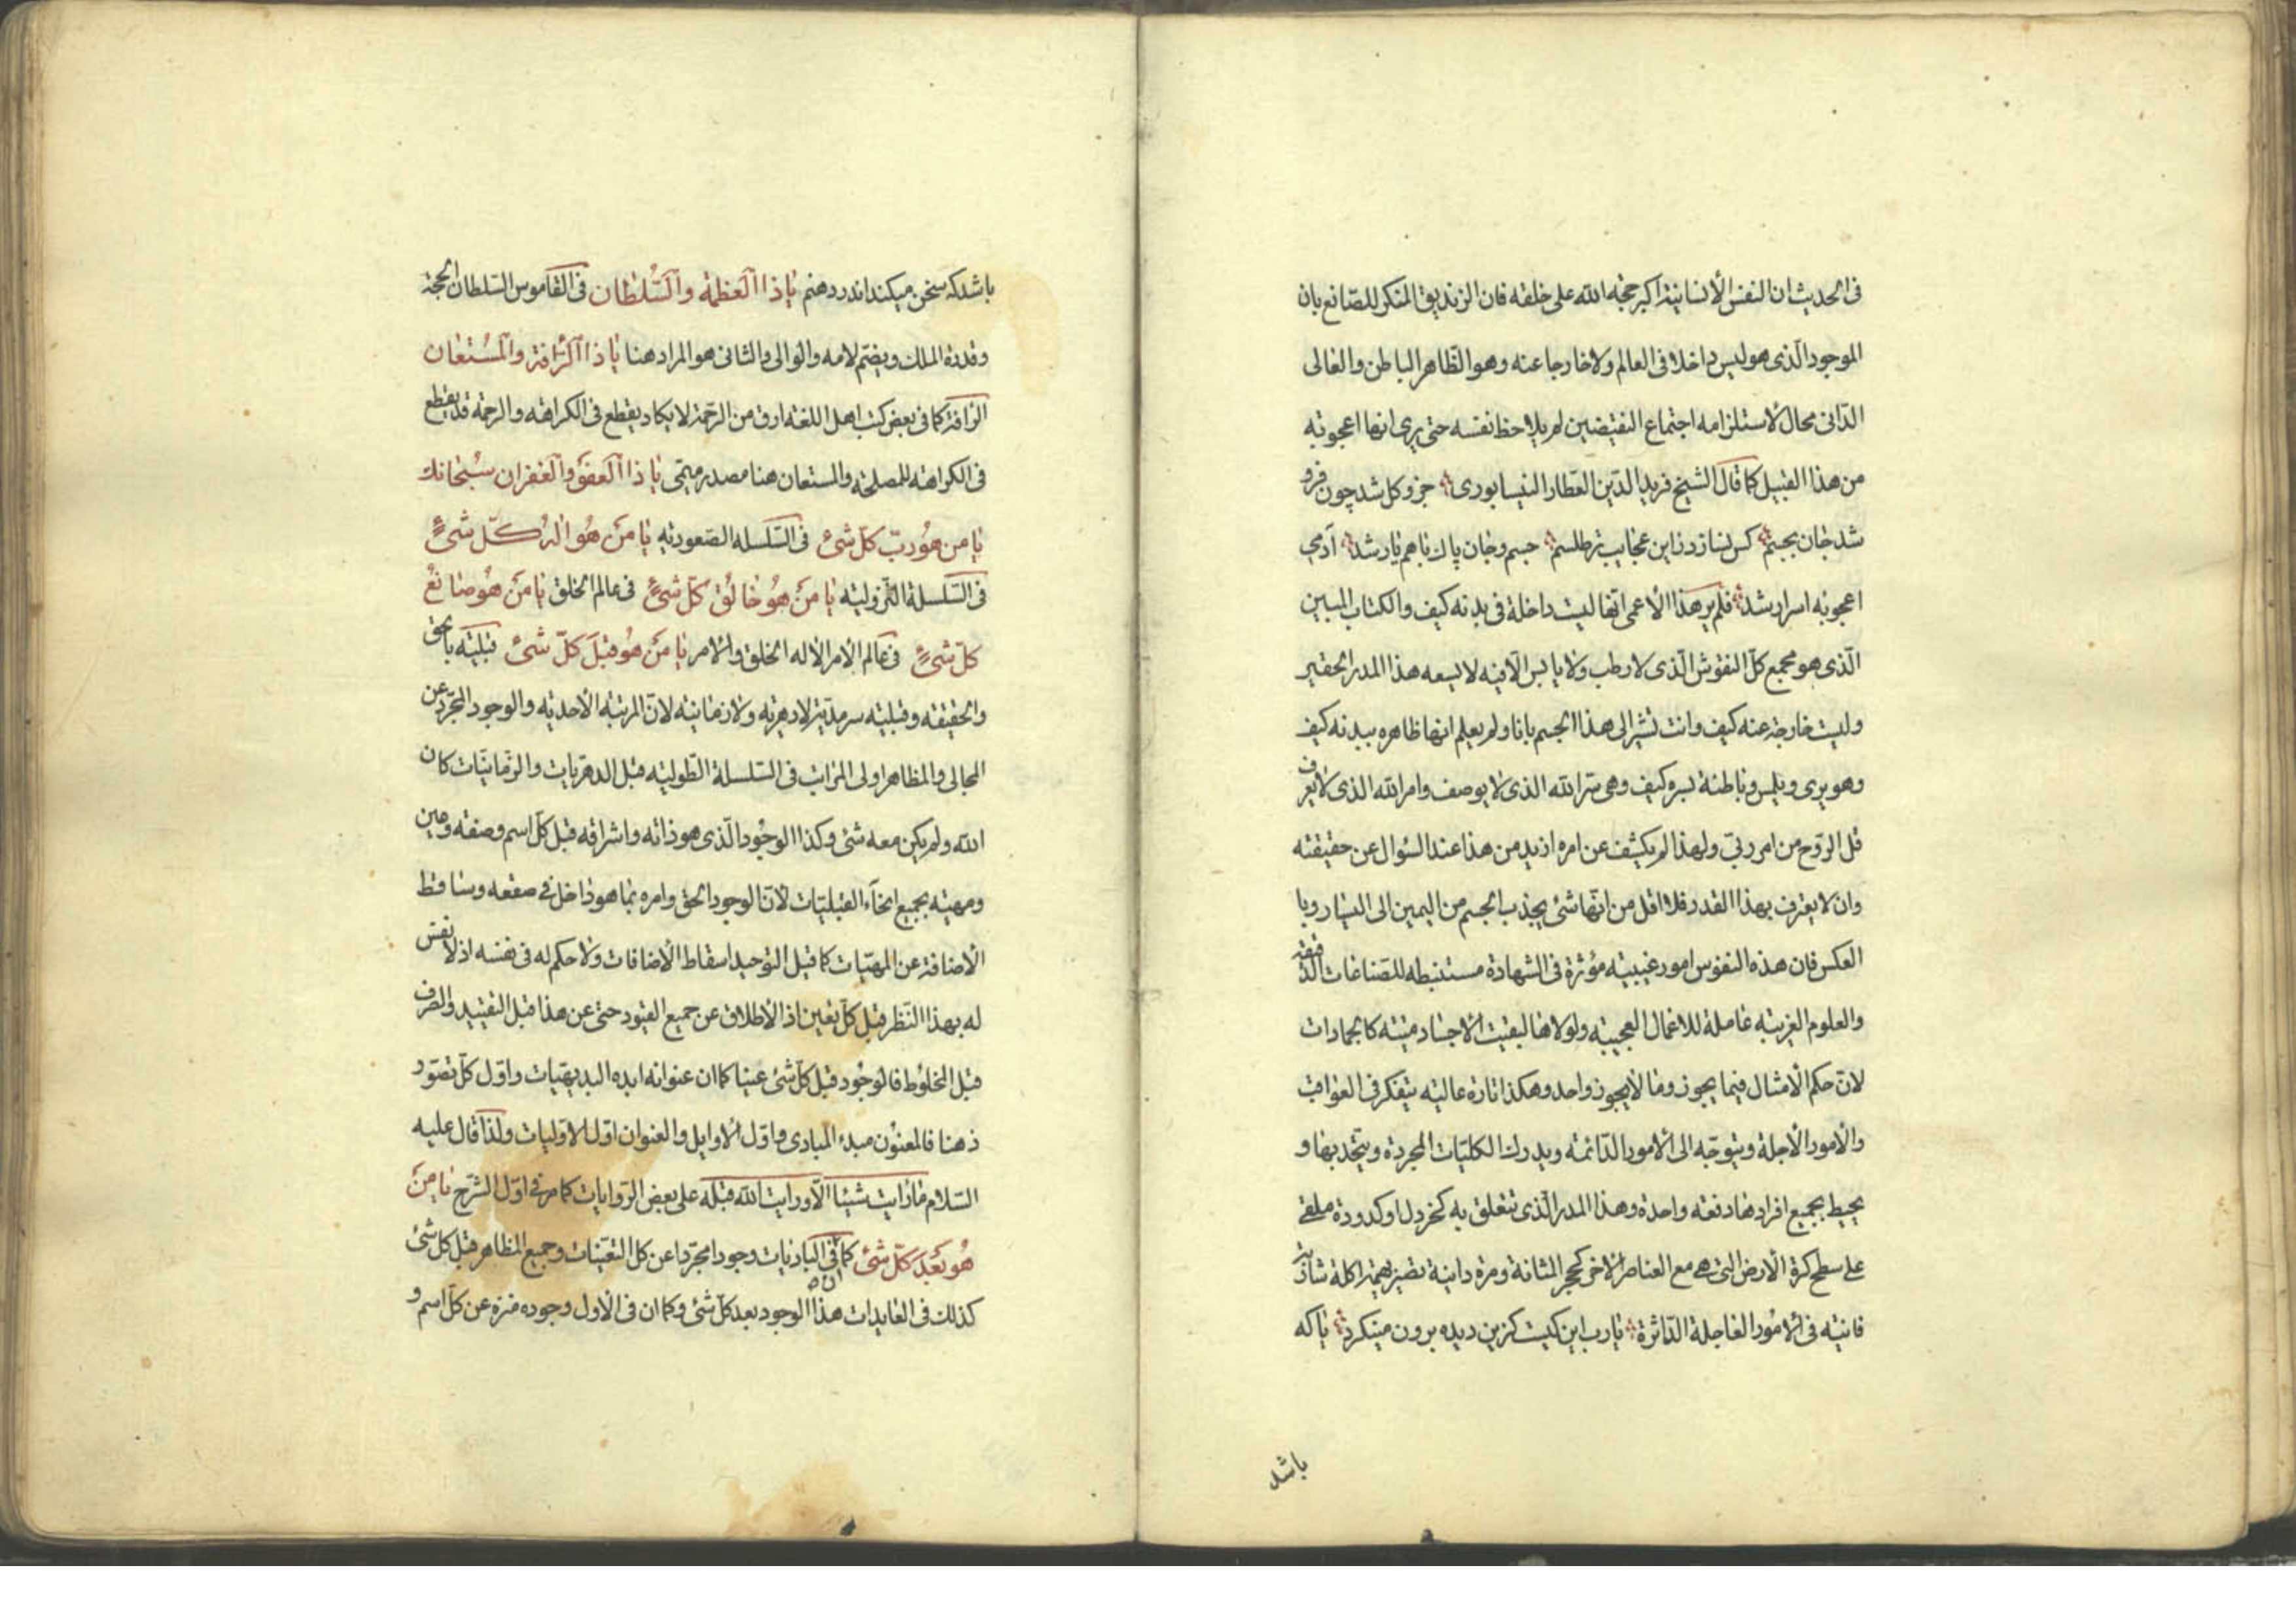 فى الحديث ان النفس الأنسانية اكبر حجة الله على خلقه فان الزنديق المنكر للصّانع بان
الموجود الّذى هو ليس داخلا فى العالم ولا خارجا عنه وهو الظّاهر الباطن والعالى
الدّانى محال لاستلزامه اجتماع النقيضين لم يلاحظ نفسه حتى يرى انها اعجوبة
من هذا القبيل كما قال الشيخ فريد الدّين العطّار النيسابورى جزو كل شد چون فرو
شد جان بجسم كس نسازد زاين عجايب تر طلسم جسم وجان پاك با هم يار شد آدمى
اعجوبه اسرار شد فلم ير هذا الأعمى انّها ليست داخلة فى بدنه كيف والكتاب المبين
الّذى هو مجمع كلّ النقوش الّذى لا رطب ولا يابس الّا فيه لا يسعه هذا المدر الحقير
وليست خارجة عنه كيف وانت تشير الى هذا الجسم بانا ولم يعلم انها ظاهره ببدنه كيف
وهو يرى ويلمس وباطنة بسره كيف وهى سرّ الله الذى لا يوصف وامر الله الذى لا يعرف
قل الرّوح من امر ربّى ولهذا لم يكشف عن امره ازيد من هذا عند السّؤال عن حقيقته
وان لا يعترف بهذا القدر فلا اقل من انّها شئ يجذب الجسم من اليمين الى اليسار وبا
العكس فان هذه النفوس امور غيبيته مؤثرة فى الشهادة مستنبطه للصّناعات الدّقيقه
والعلوم الغريبة عاملة للاعمال العجيبة ولولاها لبقيت الأجساد ميتة كالجمادات
لانّ حكم الأمثال فيما يجوز وما لا يجوز واحد وهكذا تارة عالية يتفكر فى العواقب
والأمور الأجلة ويتوجّه الى الأمور الدّائمة ويدرك الكليّات المجردة ويتّحد بها و
يحيط بجميع افرادها دفعة واحدة وهذا المدر الّذى تتعلق به كخردل او كدودة ملقى
على سطح كرة الأرض التى هى مع العناصر الأخر كحجر المثانة ومرة دانية تصير بهيمة اكلة شاربة
فانية فى الأمور العاجلة الدّاثرة يا رب اين كيست كزين ديده برون مينكرد يا كه
باشد
باشد كه سخن ميكند اندر دهنم يا ذا العظمة والسّلطان فى القاموس السّلطان الحجة
وقدرة الملك ويضمّ لامه والوالى والثانى هو المراد هنا يا ذا الرّافة والمستعان
الرّافة كما فى بعض كتب اهل اللغة ارق من الرّحمة لا يكاد يقطع فى الكراهة والرحمة قد يقطع
فى الكراهة للمصلحة والمستعان هنا مصدر ميمّى يا ذا العفو والغفران سبحانك
يا من هو ربّ كلّ شئ فى السّلسله الصّعودية يا من هو اله كلّ شئ
فى السّلسلة النّزولية يا من هو خالق كلّ شئ فى عالم الخلق يا من هو صانع
كلّ شئ فى عالم الأمر الا له الخلق والأمر يا من هو قبل كلّ شئ قبليّة بالحق
والحقيقة وقبليته سرمديّة لا دهرية ولا زمانية لانّ المرتبة الأحدية والوجود المجرّد عن
المجالى والمظاهر اولى المراتب فى السّلسلة الطّولية قبل الدهريات والزمانيّات كان
الله ولم يكن معه شئ وكذا الوجود الّذى هو ذاته واشراقه قبل كلّ اسم وصفة وعين
ومهية بجميع انحآء القبليّات لانّ الوجود الحق وامره بما هو داخل فى صقعه وساقط
الأضافة عن المهيّات كما قيل التوحيد اسقاط الأضافات ولا حكم له فى نفسه اذ لا نفس
له بهذا النّظر قبل كلّ تعين اذ الأطلاق عن جميع القيود حتى عن هذا قبل التقييد والصرف
قبل المخلوط فالوجود قبل كلّ شئ عينا كما ان عنوانه ابده البديهيّات واوّل كلّ تصوّر
ذهنا فالمعنون مبدء المبادى واوّل الأوايل والعنوان اوّل الأوّليات ولذا قال عليه
السّلام ما رايت شيئا الّا ورايت الله قبله على بعض الرّوايات كما مرّ فى اوّل الشّرح يا من
هو بعد كلّ شئ كما انّه فى الباديات وجودا مجرّدا عن كل التعيّنات وجميع المظاهر قبل كل شئ
كذلك فى العايدات هذا الوجود بعد كلّ شئ وكما ان فى الأول وجوده منزة عن كلّ اسم و